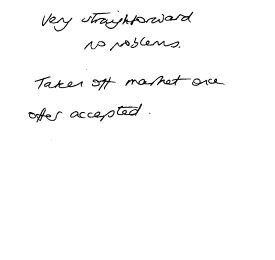 Very straightforward
no problems.
Taken off market once
offer accepted.